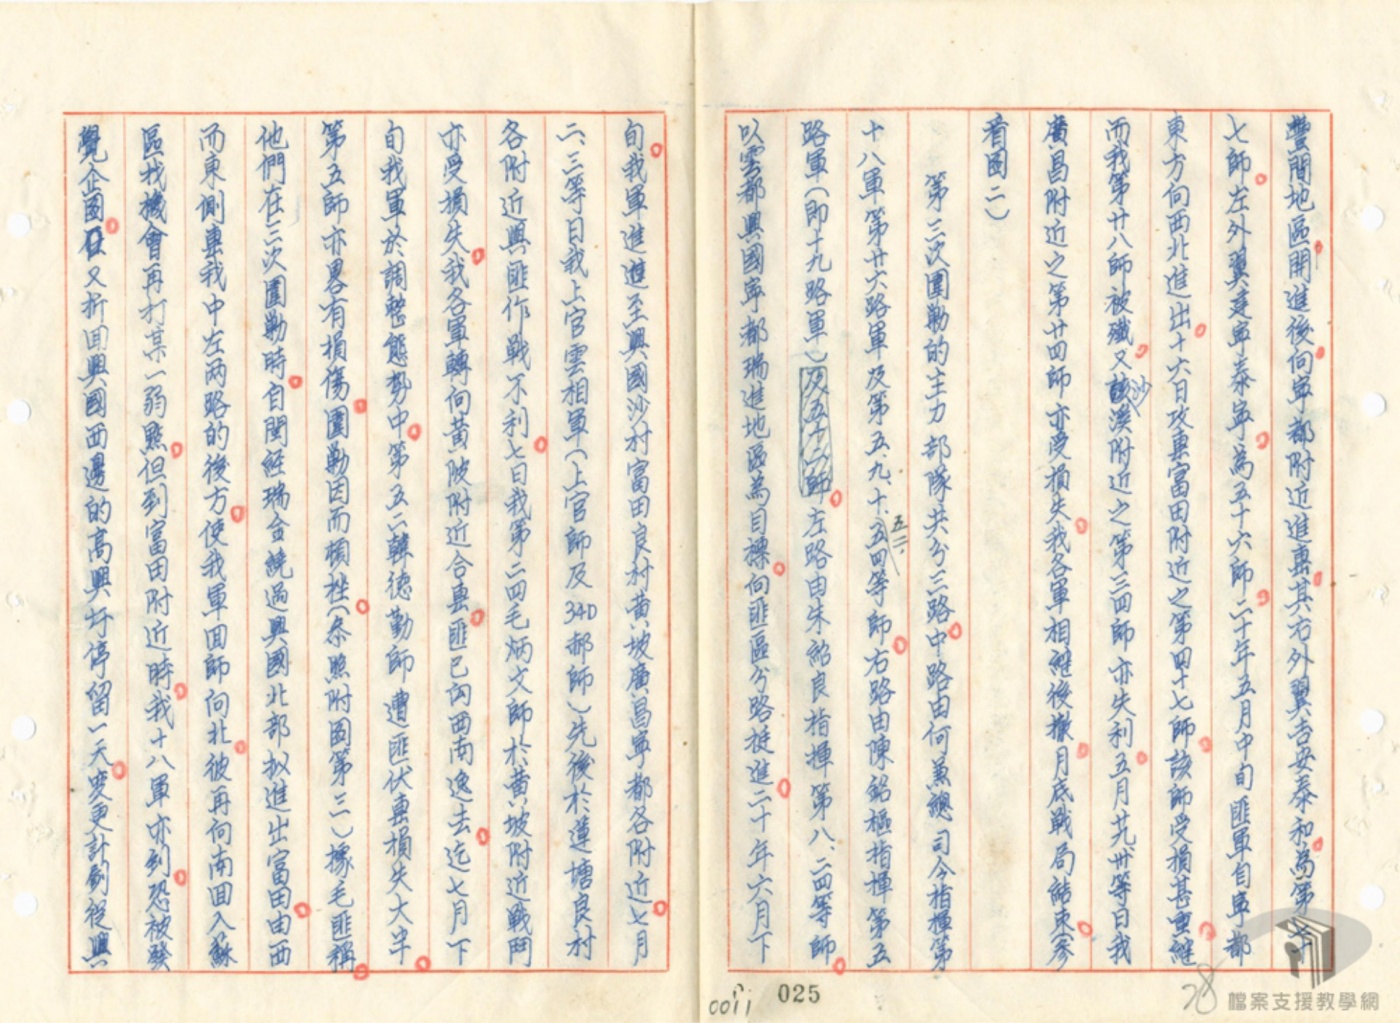 豐間地區開進後向寧都附近進專其右外翼吉安泰和為第
七師左外翼建寧泰寧為五十六師二十年五月中旬匪軍自寧都
東方向西北進出十六日攻專富田附近之第四十七師該師受損甚重繼
而我第廿八師被殲又沙溪附近之第三四師亦失利五月廿九卅等日我
廣昌附近之第廿四師亦受損失我各軍相繼後撤月底戰局結束參
看圖二)
第三次圍勦的主力部隊共分三路中路由何兼總司令指揮第
十八軍第廿六路軍及第五、九、十、五二、五四等師右路由陳銘樞指揮第五
路軍(即十九路軍)及五十二師左路由朱紹良指揮第八、二四等師
以雲都興國寧都瑞進地區為目標向匪區分路挺進二十年六月下
旬我軍進進至興國沙村富田良村黃坡廣昌寧都各附近七月
二、三等日我上官雲相軍(上官師及340郝師)先後於蓮塘良村
各附近與匪作戰不利七日我第二四毛炳文師於黃坡附近戰鬥
亦受損失我各軍轉向黃陂附近合專匪已向西南逸去迄七月下
旬我軍於調整態勢中第五二韓德勤師遭匪伏專損失大半
第五師亦畧有損傷圍勦因而頓挫(參照附圖第三)據毛匪稱
他們在三次圍勦時自閩經瑞金繞過興國北部拟進出富田由西
而東側專我中左两路的後方使我軍回師向北彼再向南回入蘇
區找機會再打某一弱點但到富田附近時我十八軍亦到恐被發
覺企圖又折回興國西邊的高興圩停留一天变更計劃從興
0011
025
28
檔案支援教學網